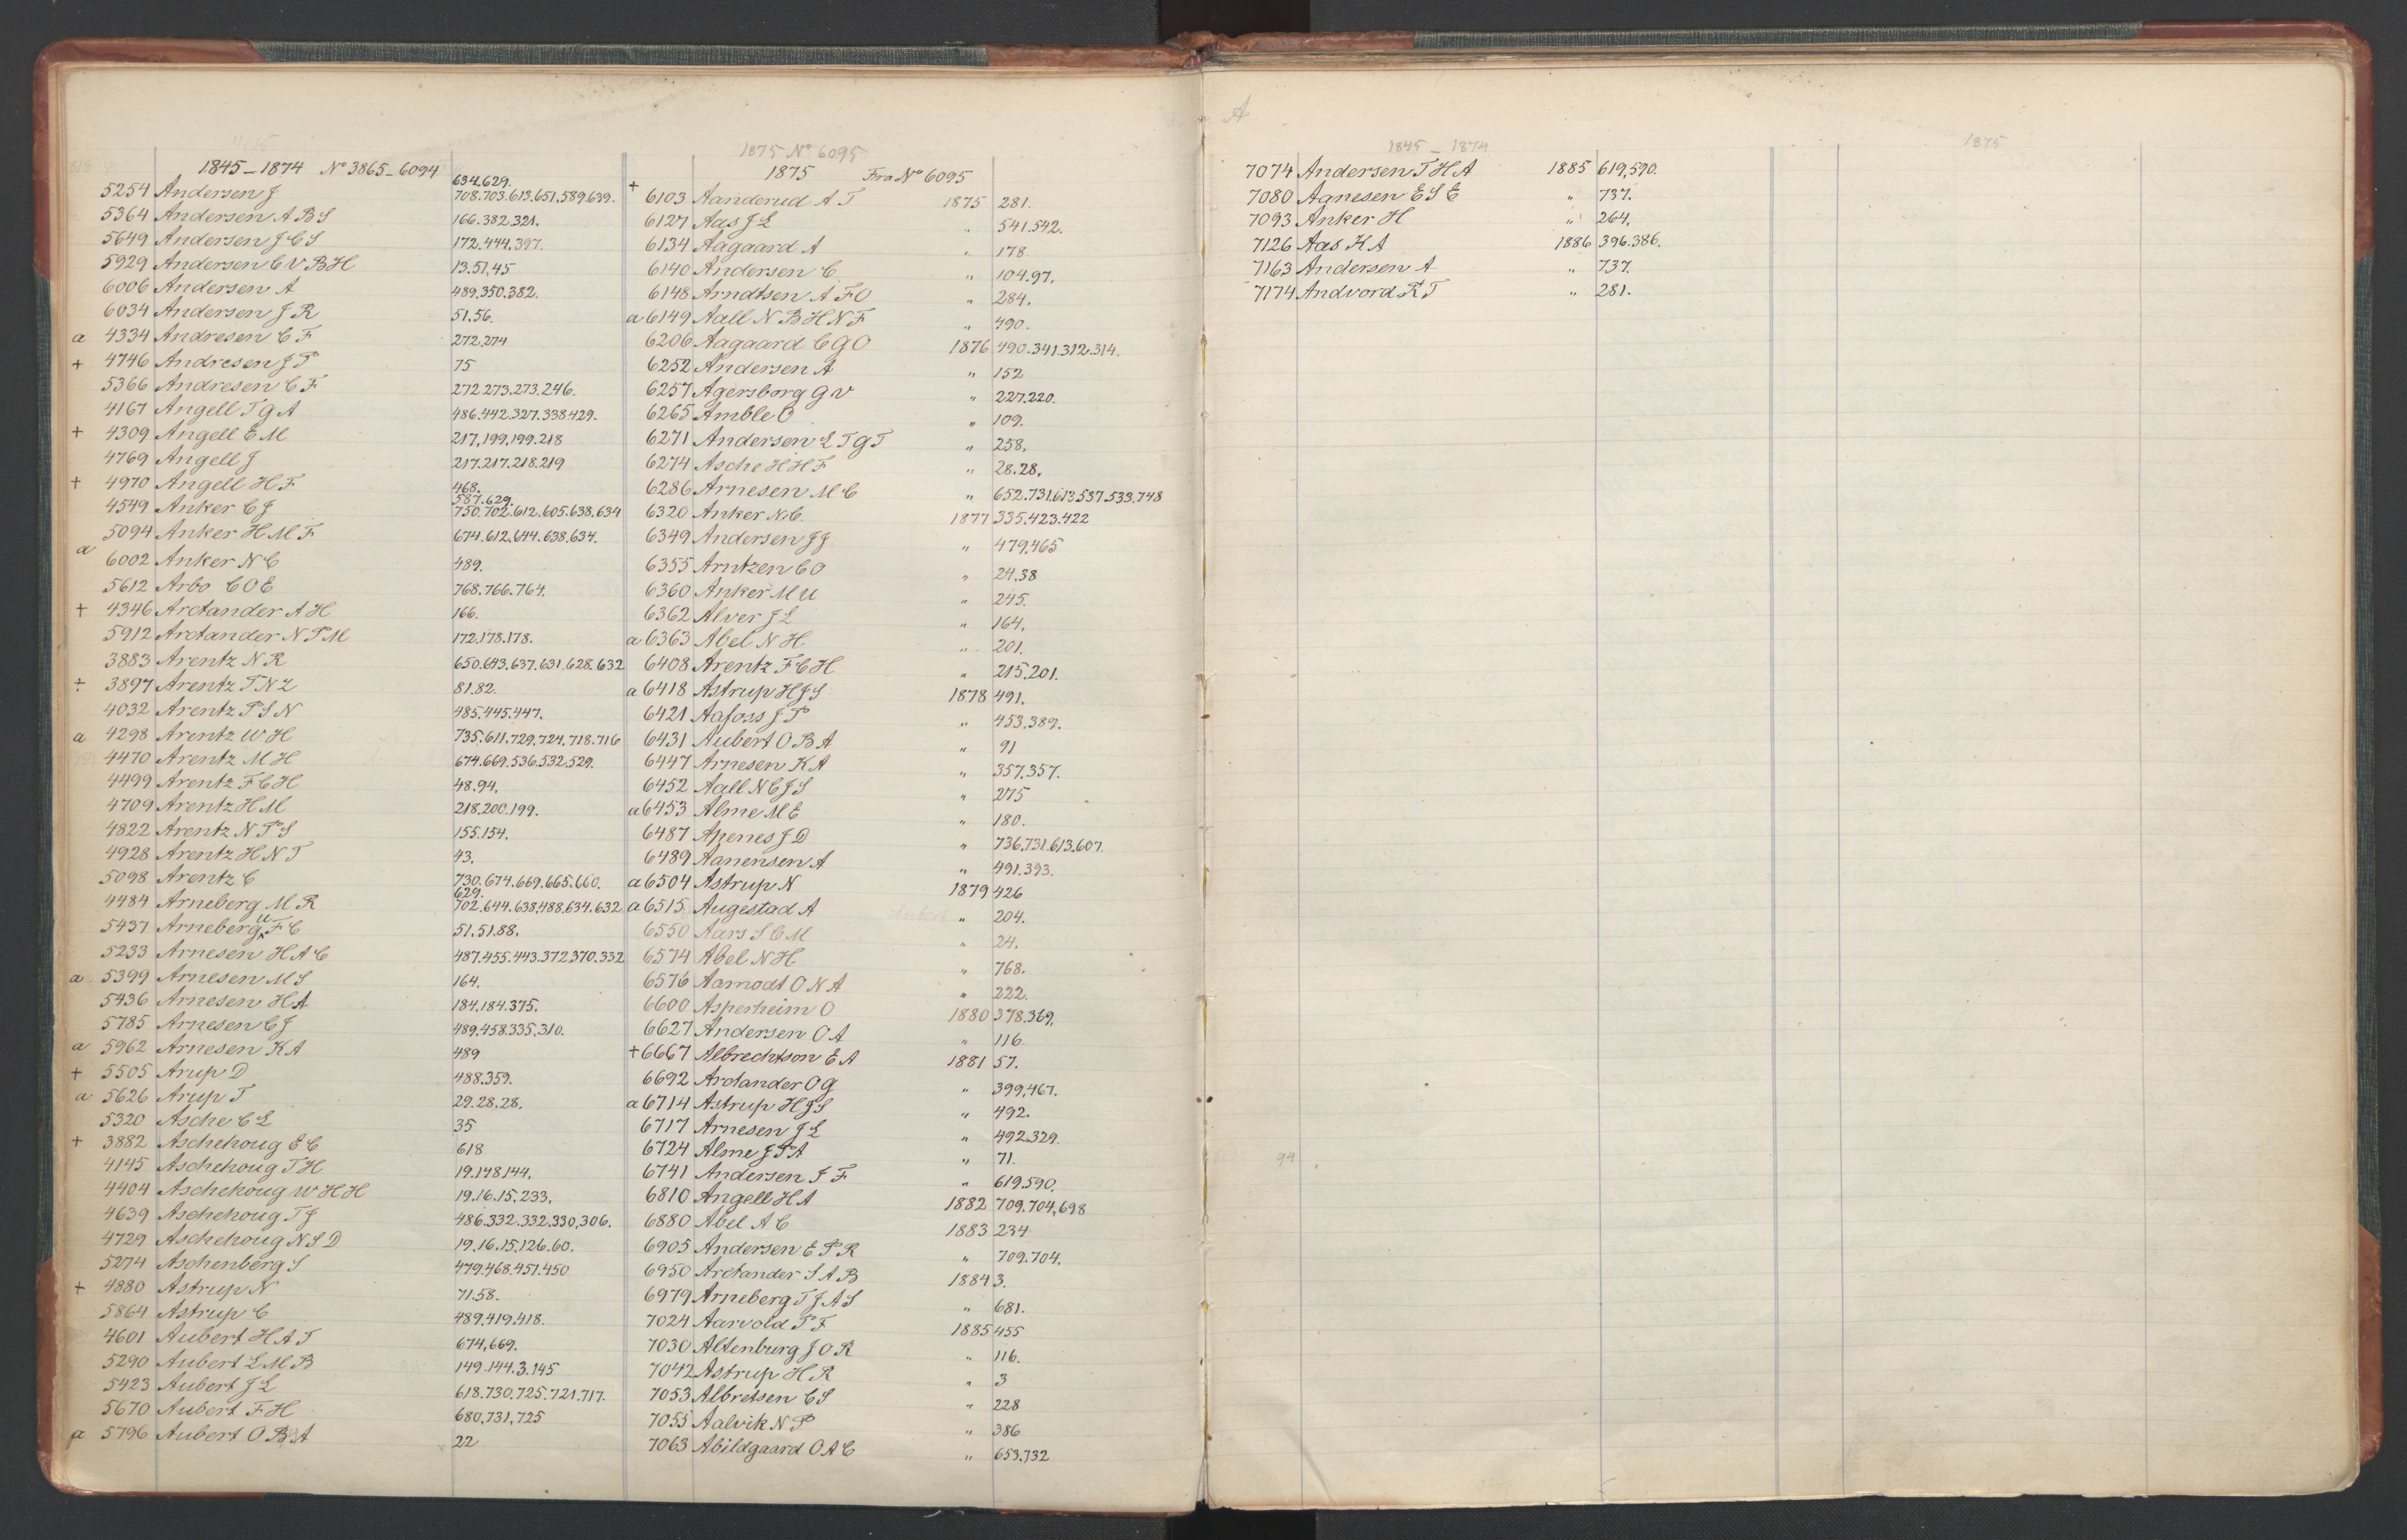 1845-1874 No 3865-6094
634.629.
5254 Andersen J 708.703.613.651.589.639.
5364 Andersen A B S 166.382.321.
5649 Andersen J C S 172.444.397.
5929 Andersen C V B H 13.51.45
6006 Andersen A 489.350.382.
6034 Andersen J R 51.56.
a 4334 Andresen C F 272.274
+ 4746 Andresen J P 75
5366 Andresen C F 272.273.273.246.
4167 Angell T G A 486.442.327.338.429.
+ 4309 Angell E M 217.199.199.218
4769 Angell J 217.217.218.219
+ 4970 Angell H F 468.
587.629.
4549 Anker C J 750.702.612.605.638.634
5094 Anker H M F 674.612.644.638.634.
a 6002 Anker N C 489.
5612 Arbo C O E 768.766.764.
+ 4346 Arctander A H 166.
5912 Arctander N P M 172.178.178.
3883 Arentz N R 650.643.637.631.628.632
+ 3897 Arentz T N Z 81.82.
4032 Arentz P S N 485.445.447.
a 4298 Arentz W H 735.611.729.724.718.716
4470 Arentz M H 674.669.536.532.529.
4499 Arentz F C H 48.94.
4709 Arentz H M 218.200.199.
4822 Arentz N P S 155.154.
4928 Arentz H N T 43.
5098 Arentz C 730.674.669.665.660.
629.
4484 Arneberg M R 702.644.638.488.634.632
5437 Arneberg U F C 51.51.88.
5233 Arnesen H A C 487.455.443.372.370.332
a 5399 Arnesen M S 164.
5436 Arnesen H A 184.184.375.
5785 Arnesen C J 489.458.335.310.
a 5962 Arnesen K A 489
+ 5505 Arup D 488.359.
a 5626 Arup T 29.28.28.
5320 Asche C L 35
+ 3882 Aschehoug E C 618
4145 Aschehoug T H 19.148.144.
4404 Aschehoug W H H 19.16.15.233.
4639 Aschehoug T J 486.332.332.330.306.
4729 Aschehoug N S D 19.16.15.126.60.
5274 Aschenberg S 479.468.451.450
+ 4880 Astrup N 71.58.
5864 Astrup C 489.419.418.
4601 Aubert H A T 674.669.
5290 Aubert L M B 149.144.3.145
5423 Aubert J L 618.730.725.721.717.
5670 Aubert F H 680.731.725
a 5796 Aubert O B A 22
1875 No 6095
1875 Fra No 6095
+ 6103 Aanderud A T 1875 281.
6127 Aas J L " 541.542.
6134 Aagaard A " 178
6140 Andersen C " 104.97.
6148 Arndtsen A F O " 284.
a 6149 Aall N B H N F " 490.
6206 Aagaard C G O 1876 490.341.312.314.
6252 Andersen A " 152
6257 Agersborg G V " 227.220.
6265 Amble O " 109.
6271 Andersen L T G T " 258.
6274 Asche H H F " 28.28.
6286 Arnesen M C " 652.731.613.537.533.748
6320 Anker N C. 1877 335.423.422
6349 Andersen J J " 479.465
6355 Arntzen C O " 24.38
6360 Anker M U " 245.
6362 Alver J L " 164.
a 6363 Abel N H " 201.
6408 Arentz F C H " 215.201.
a 6418 Astrup H J S 1878 491.
6421 Aafoss J P " 453.389.
6431 Aubert O B A " 91
6447 Arnesen K A " 357.357.
6452 Aall N C J S " 275
a 6453 Alme M E " 180.
6487 Apenes J D " 736.731.613.607.
6489 Aanensen A " 491.393.
a 6504 Astrup N 1879 426
a 6515 Augestad A " 204.
6550 Aars S C M " 24.
6574 Abel N H " 768.
6576 Aamodt O N A " 222.
6600 Asperheim O 1880 378.369.
6627 Andersen O A " 116.
+ 6667 Albrechtson E A 1881 57.
6692 Arctander O G " 399.467.
a 6714 Astrup H J S " 492.
6717 Arnesen J L " 492.329.
6724 Alme J P A " 71.
6741 Andersen J F " 619.590.
6810 Angell H A 1882 709.704.698
6880 Abel A C 1883 234
6905 Andersen E P R " 709.704.
6950 Arctander S A B 1884 3.
6979 Arneberg T J A S " 681.
7024 Aarvold P F 1885 455
7030 Altenburg J O R " 116.
7042 Astrup H R " 3
7053 Albretsen C S " 228
7055 Aalvik N P " 386
7063 Abildgaard O A C " 653.732
A
1845-1874
1875
7074 Andersen T H A 1885 619.590.
7080 Agnesen E S E " 737.
7093 Anker H " 264.
7126 Aas K A 1886 396.386.
7163 Andersen A " 737.
7174 Andvord R T " 281.
94